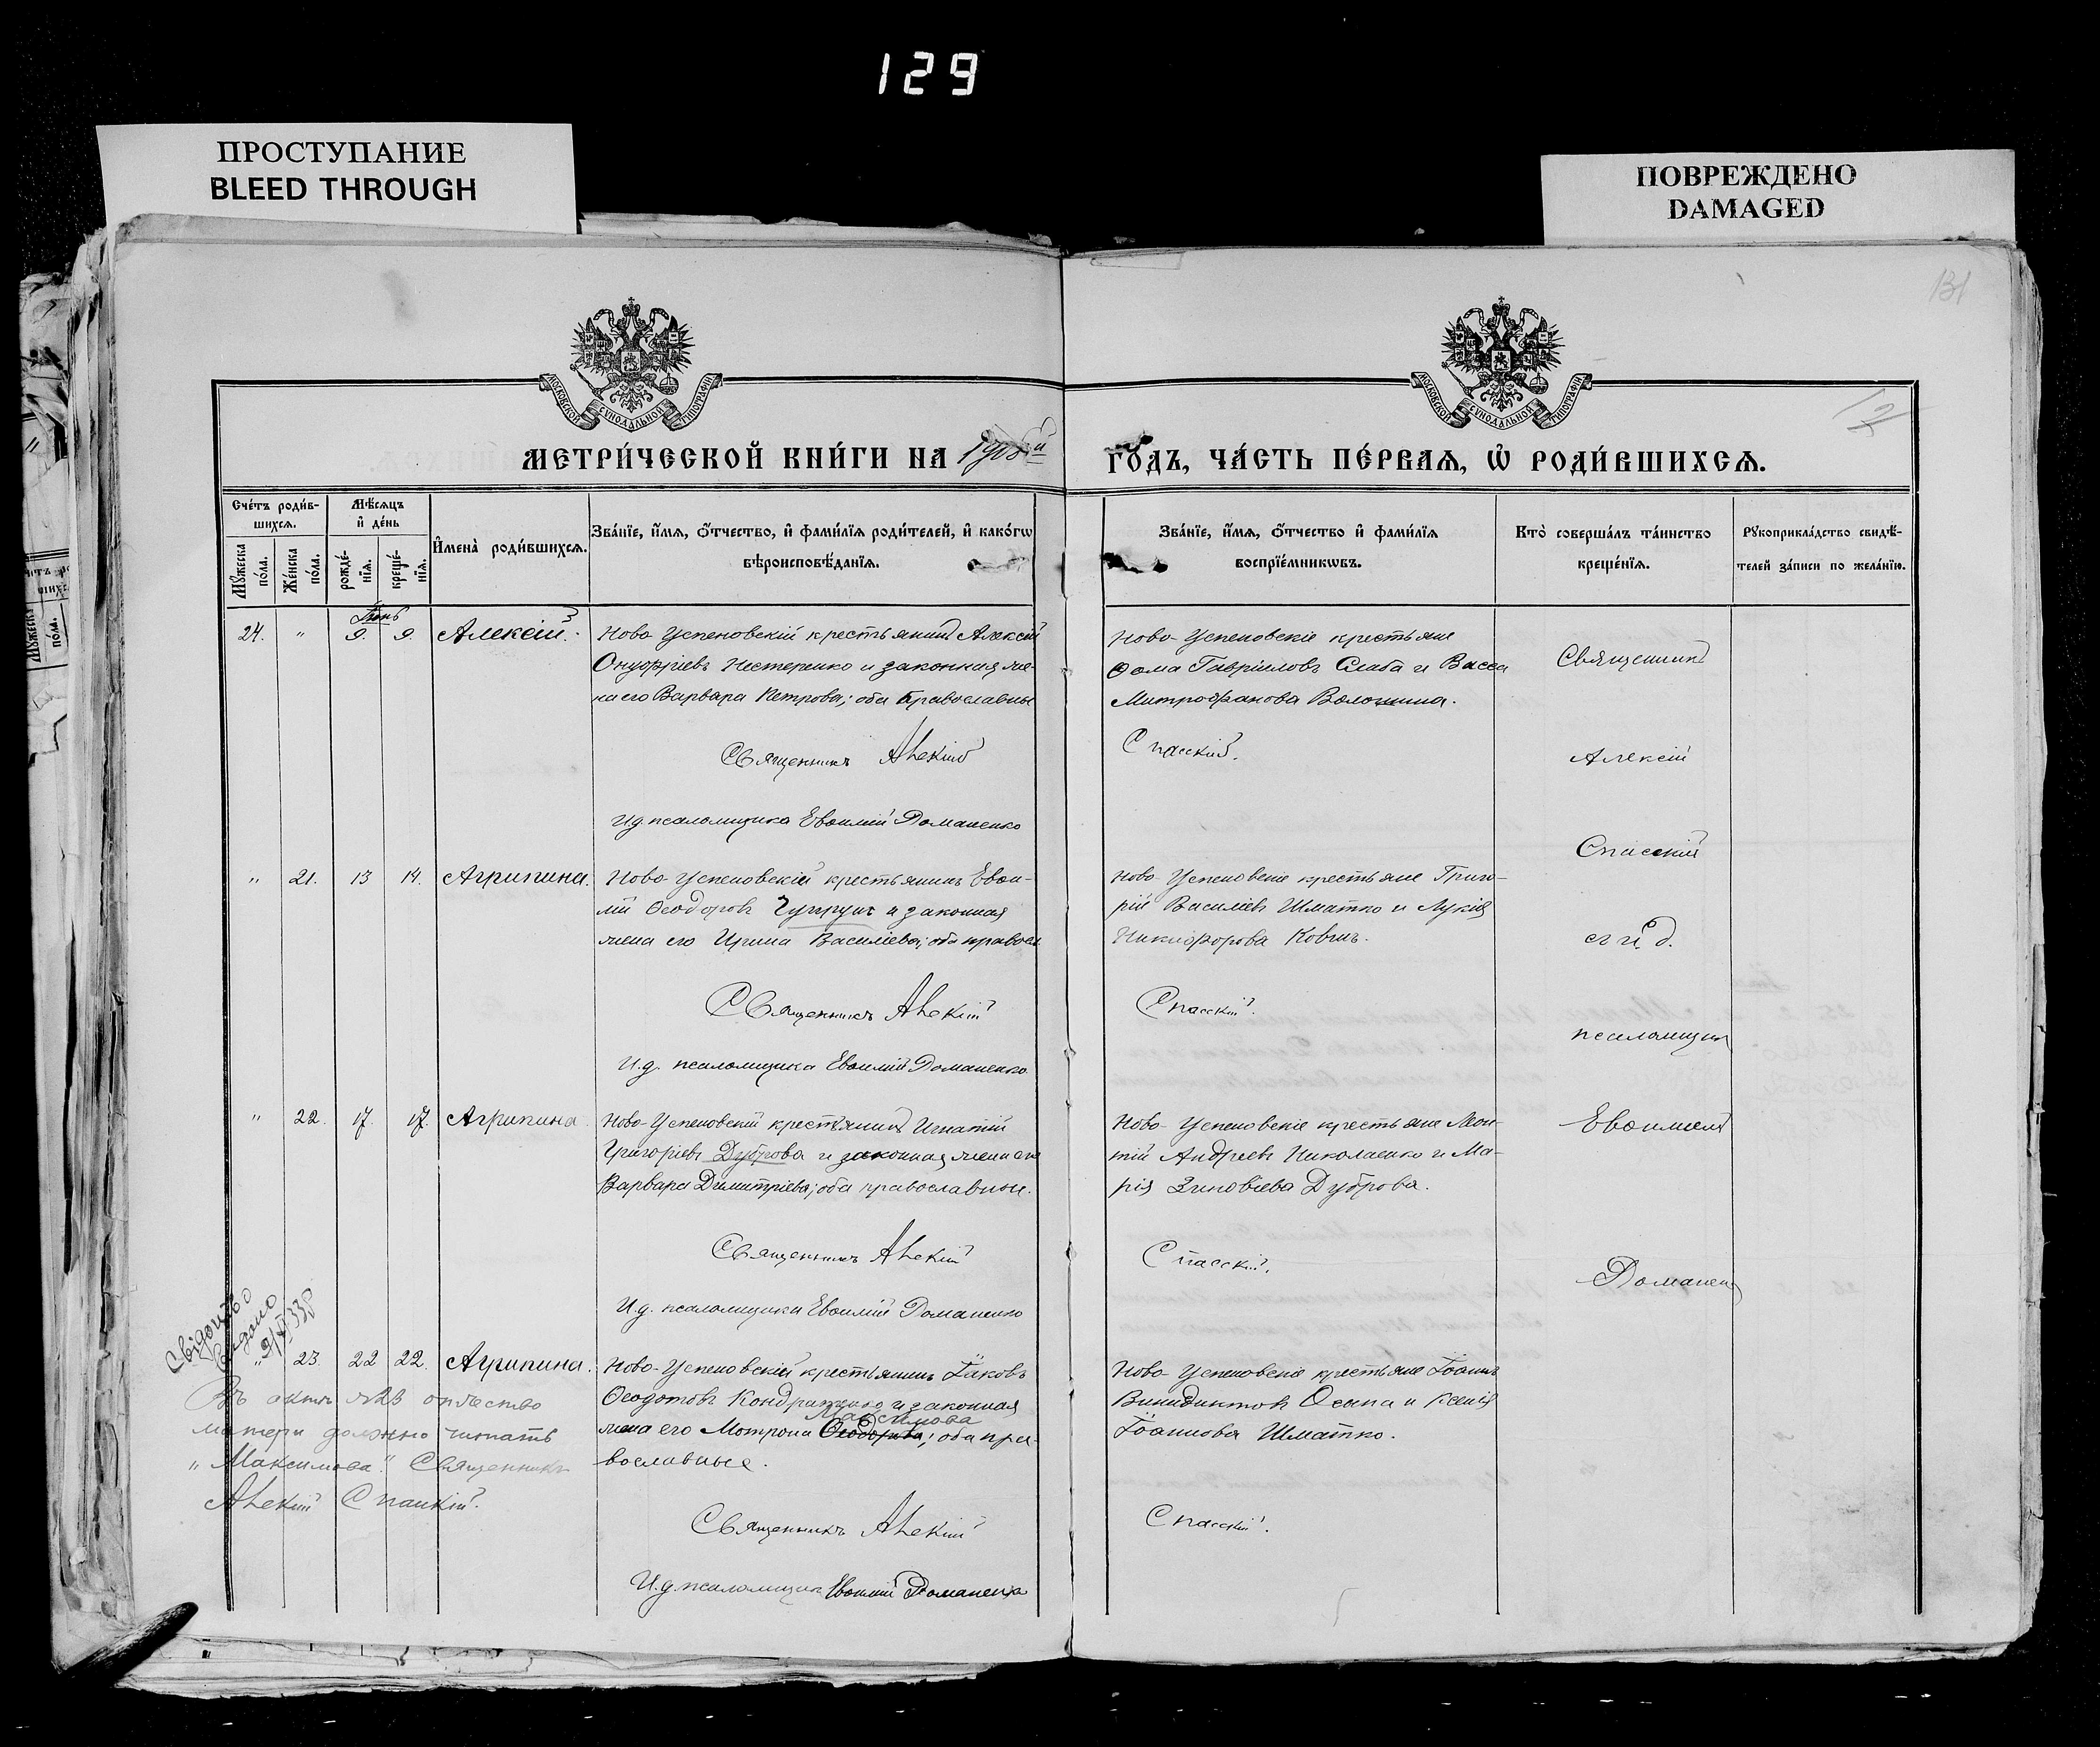 129
ПРОСТУПАНИЕ
BLEED THROUGH
ПОВРЕЖДЕНО
DAMAGED
131
МОСКОВСКОЙ СѴНОДАЛЬНОЙ ТИПОГРАФІИ
МОСКОВСКОЙ СѴНОДАЛЬНОЙ ТИПОГРАФІИ
МЕТРИ́ЧЕСКОЙ КНИ́ГИ НА 1908й ГО́ДЪ, ЧА́СТЬ ПЕ́РВАѦ, Ѡ҆ РОДИ́ВШИХСѦ.
Сче́тъ роди́в-
шихсѧ.
Мꙋ́жеска по́ла.
Же́нска по́ла.
Мѣ́сѧцъ
и҆ де́нь
рожде́-
нїѧ.
креще́-
нїѧ.
И҆мена̀ роди́вшихсѧ.
Зва́нїе, и҆́мѧ, ѻ҆́тчество, и҆ фами́лїѧ роди́телей, и҆ како́гѡ
вѣроисповѣ́данїѧ.
Зва́нїе, и҆́мѧ, ѻ҆́тчество и҆ фами́лїѧ
воспрїе́мникѡвъ.
Кто̀ соверша́лъ та́инство
креще́нїѧ.
Рꙋкоприкла́дство свидѣ́-
телей за́писи по жела́нїю.
Іюнь
24. " 9. 9. Алексій.
Ново-Успеновскій крестьянинъ Алексій
Онуфріевъ Нестеренко и законная же-
на его Варвара Петрова; оба православные
Священникъ Алексій
И.д. псаломщика Евѳимій Доманенко
Ново-Успеновскіе крестьяне
Ѳома Гавріиловъ Слаба и Васса
Митрофанова Волошина.
Спасскій.
Священникъ
Алексій
Спасскій
съ и. д.
псаломщика
Евѳиміемъ
Доманенко
" 21. 13 14. Агрипина.
Ново-Успеновскій крестьянинъ Евѳи-
мій Ѳеодоровъ и законная
жена его Ирина Василіева; оба правосл.
Священникъ Алексій
И.д. псаломщика Евѳимій Доманенко
Ново-Успеновскіе крестьяне Григо-
рій Василіевъ Шматко и Лукія
Никифорова Ковшъ.
Спасскій.
" 22. 17. 17. Агрипина.
Ново-Успеновскій крестьянинъ Игнатій
Григоріевъ Дуброва и законная жена его
Варвара Димитріева; оба православные.
Священникъ Алексій
И.д. псаломщика Евѳимій Доманенко
Ново-Успеновскіе крестьяне Леон-
тій Андреевъ Николаенко и Ма-
рія Зиновіева Дуброва.
Спасскій.
Свідоцтво
видано
" 23. 22 22. Агрипина.
Ново-Успеновскій крестьянинъ Іаковъ
Ѳеодотовъ Кондратенко и законная
Максимова
жена его Мотрона Ѳеодорова; оба пра-
вославные.
Священникъ Алексій
И.д. псаломщика Евѳимій Доманенко
Ново-Успеновскіе крестьяне Іоаннъ
Винидиктовъ Осипа и Ксенія
Іоаннова Шматко.
Спасскій.
Въ актѣ №23 отчество
матери должно читать
"Максимова". Священникъ
Алексій Спасскій.